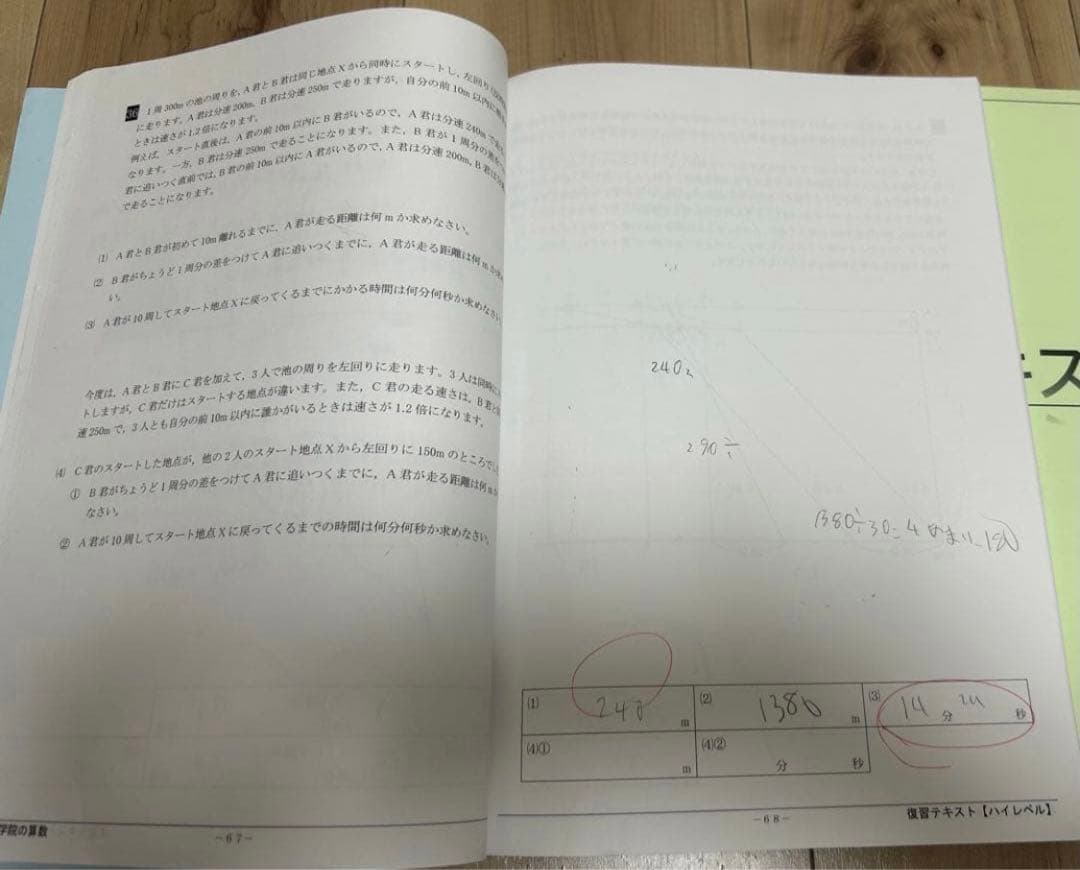 36 1周300mの池の周りを，A君とB君は同じ地点Xから同時にスタートし，左回り
に走ります。A君は分速200m，B君は分速250mで走りますが，自分の前10m以内に
ときは速さが1.2倍になります。
例えば，スタート直後は，A君の前10m以内にB君がいるので，A君は分速240mで
なります。一方，B君は分速250mで走ることになります。また，B君が1周分の差を
君に追いつく直前では，B君の前10m以内にA君がいるので，A君は分速200m，B君は
で走ることになります。
(1) A君とB君が初めて10m離れるまでに，A君が走る距離は何mか求めなさい。
(2) B君がちょうど1周分の差をつけてA君に追いつくまでに，A君が走る距離は何mか
い。
(3) A君が10周してスタート地点Xに戻ってくるまでにかかる時間は何分何秒か求めなさい
今度は，A君とB君にC君を加えて，3人で池の周りを左回りに走ります。3人は同時に
トしますが，C君だけはスタートする地点が違います。また，C君の走る速さは，B君と
速250mで，3人とも自分の前10m以内に誰かがいるときは速さが1.2倍になります。
(4) C君のスタートした地点が，他の2人のスタート地点Xから左回りに150mのところで
① B君がちょうど1周分の差をつけてA君に追いつくまでに，A君が走る距離は何m
なさい。
② A君が10周してスタート地点Xに戻ってくるまでの時間は何分何秒か求めなさい。
学院の算数
－67－
240
290÷
1380÷30=4 あまり－180
(1) 240 m (2) 1380 m (3) 14 分 24 秒
(4)① m (4)② 分 秒
－68－
復習テキスト【ハイレベル】
キス